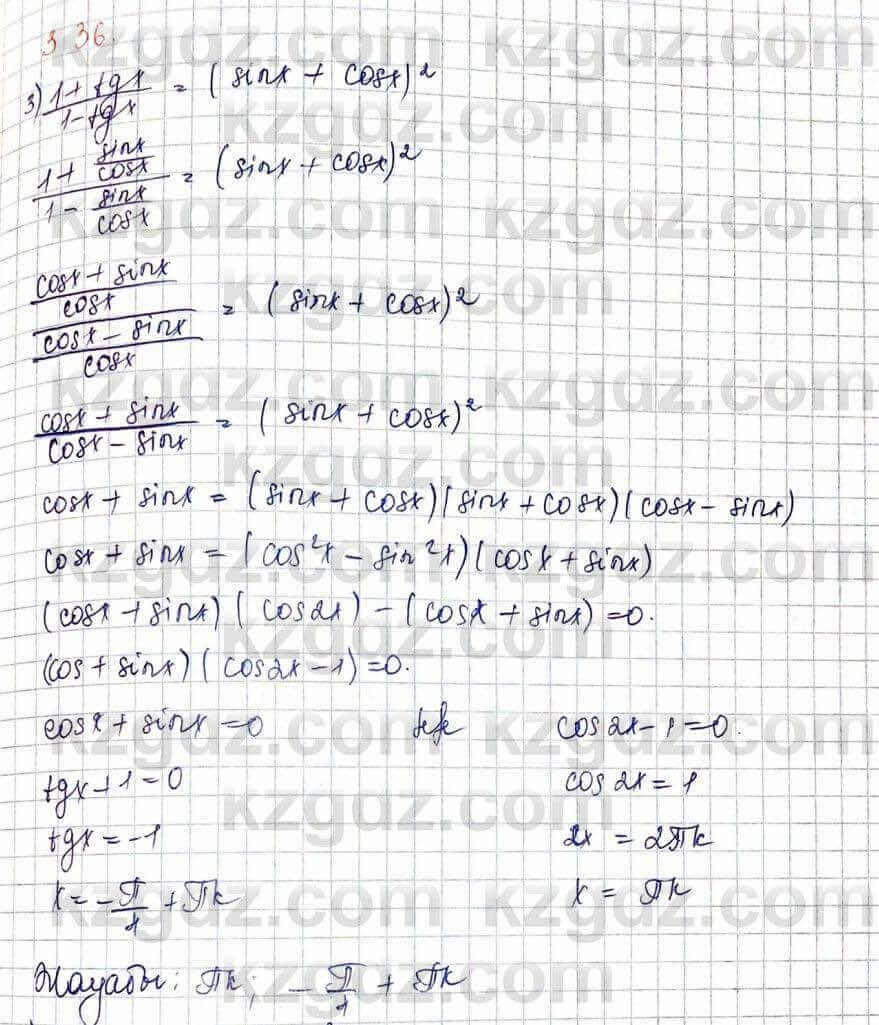 3 36.
3) (1 + tgx)/(1 - tgx) = (sinx + cosx)²
(1 + sinx/cosx)/(1 - sinx/cosx) = (sinx + cosx)²
((cosx + sinx)/cosx)/((cosx - sinx)/cosx) = (sinx + cosx)²
(cosx + sinx)/(cosx - sinx) = (sinx + cosx)²
cosx + sinx = (sinx + cosx)(sinx + cosx)(cosx - sinx)
cosx + sinx = (cos²x - sin²x)(cosx + sinx)
(cosx + sinx)(cos2x) - (cosx + sinx) = 0.
(cos + sinx)(cos2x - 1) = 0.
cosx + sinx = 0 cos2x - 1 = 0.
tgx + 1 = 0 cos2x = 1
tgx = -1 2x = 2πk
x = -π/1 + πk x = πk
Жауабы: πk; -π/1 + πk
kzgdz.com